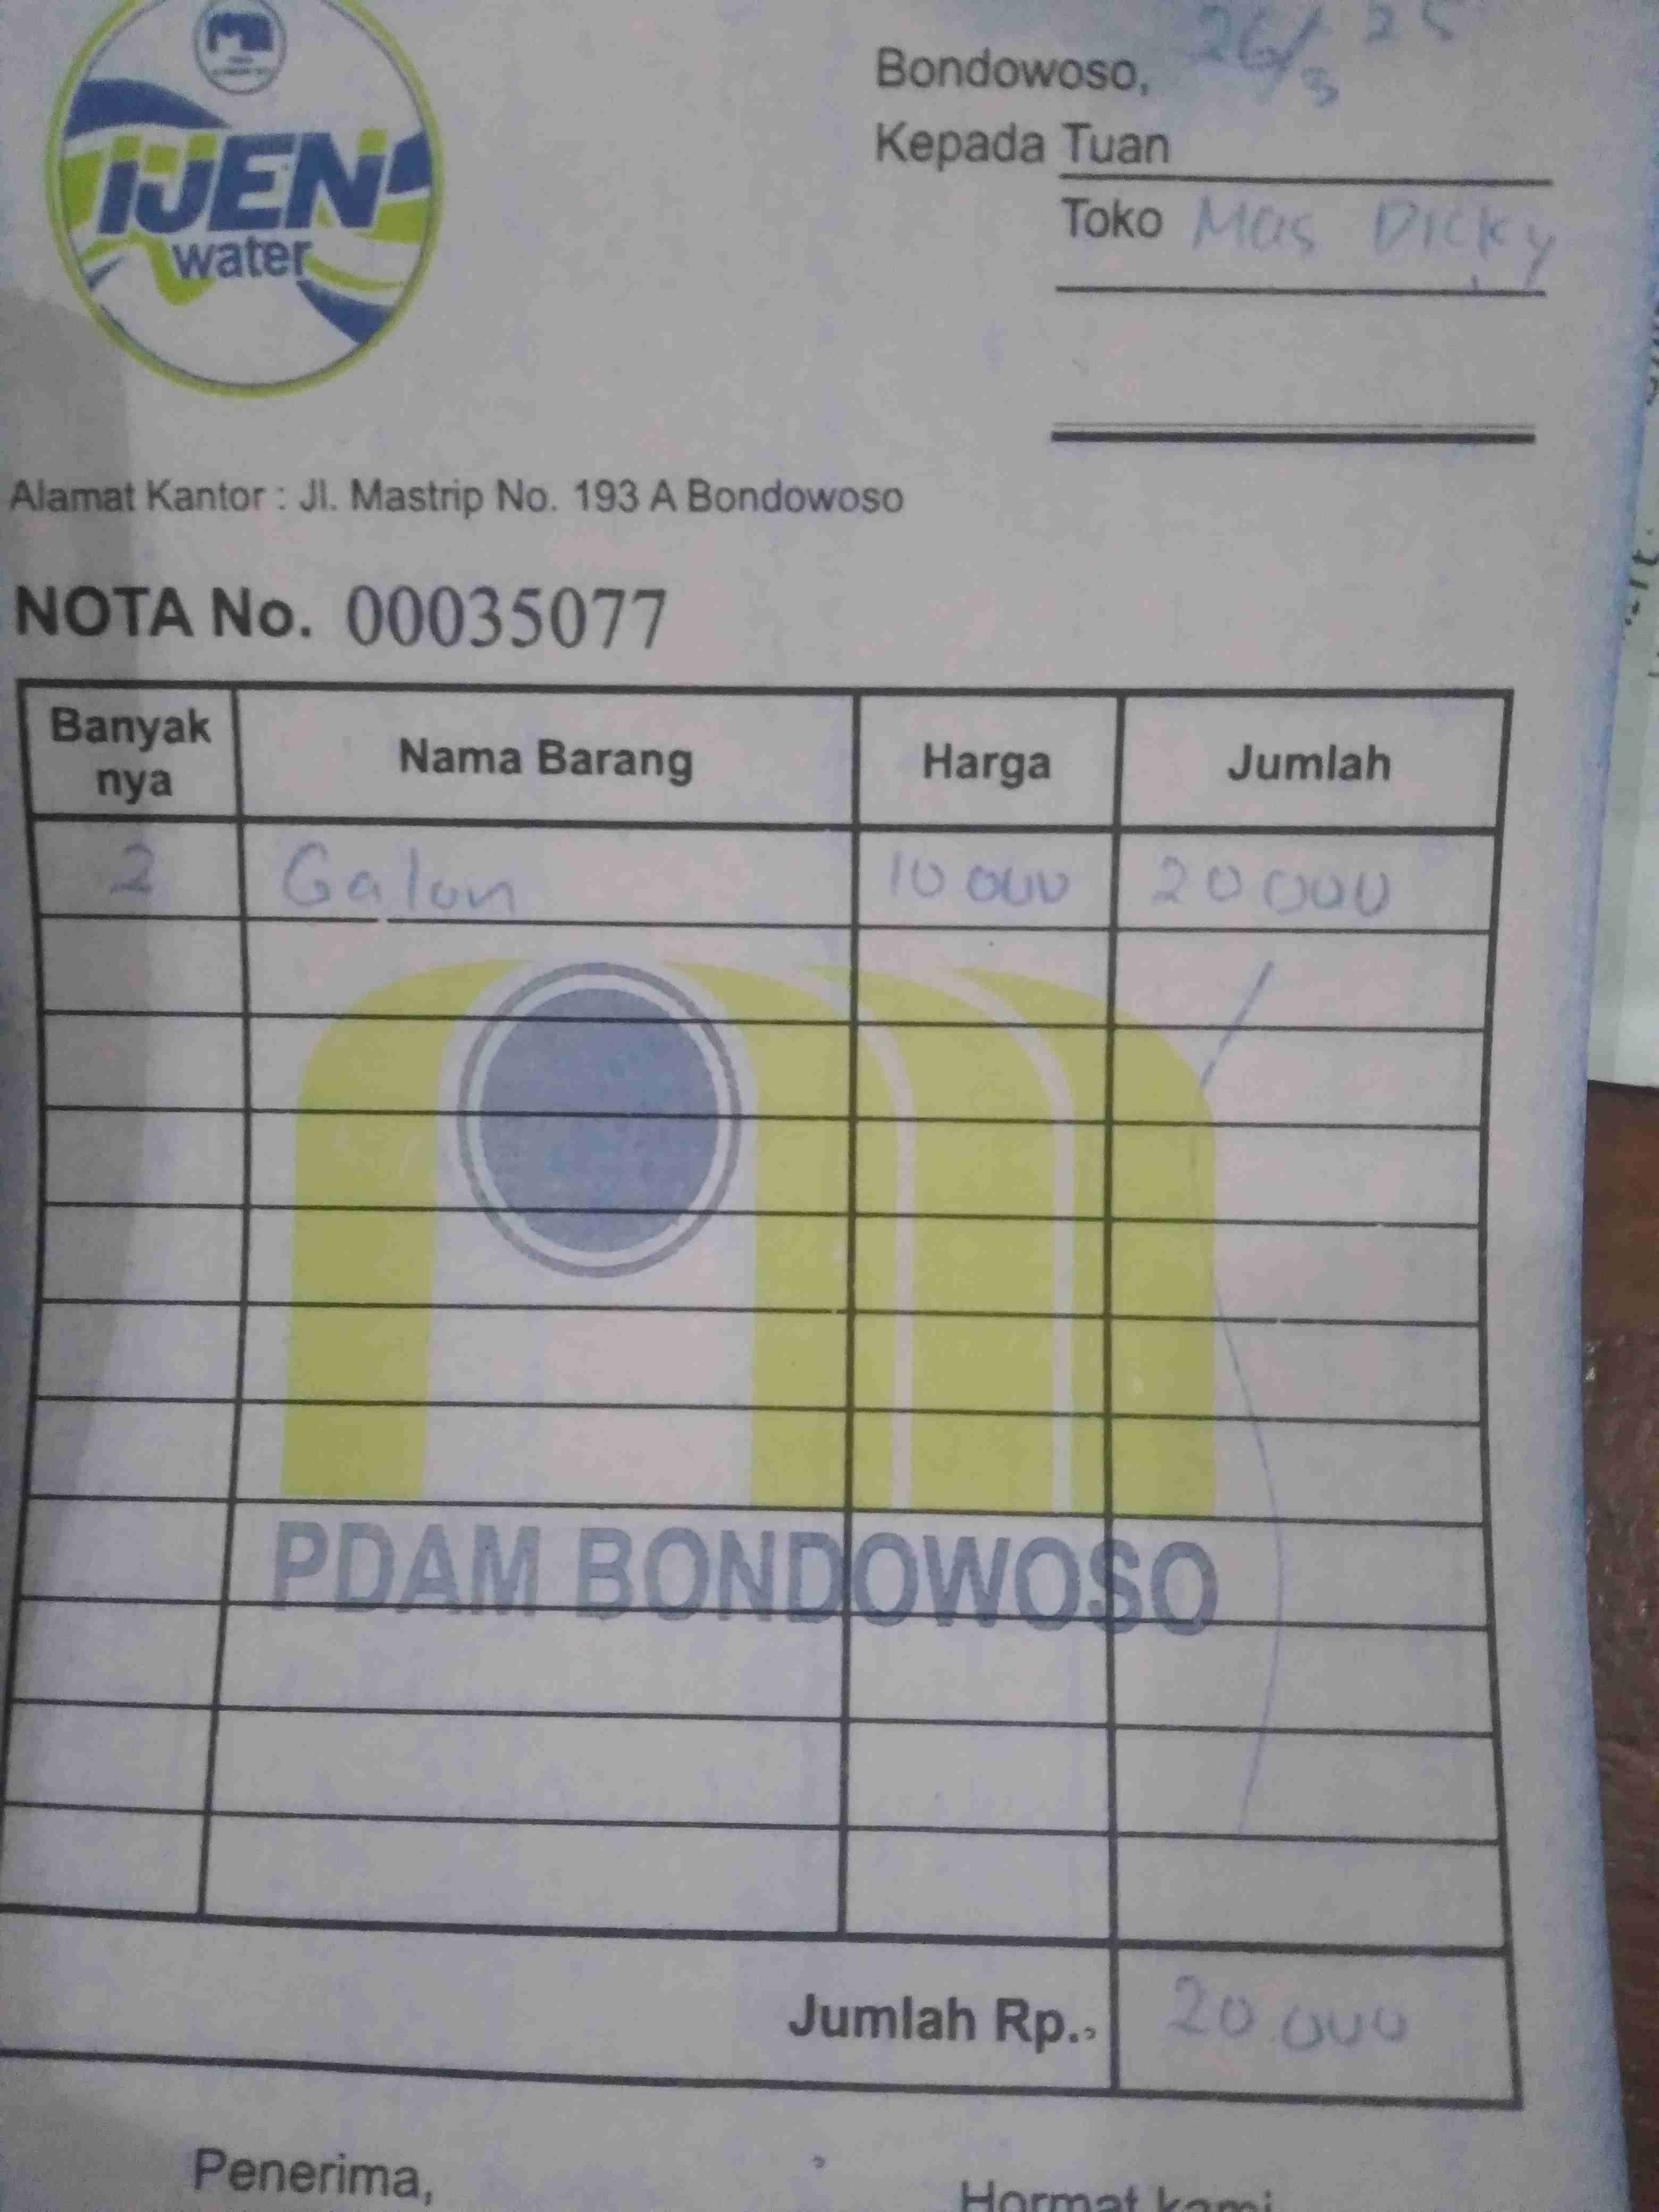 IJEN
water
Bondowoso, 26/3 25
Kepada Tuan
Toko Mas Dicky
Alamat Kantor : Jl. Mastrip No. 193 A Bondowoso
NOTA No. 00035077
Banyak nya Nama Barang Harga Jumlah
2 Galon 10 000 20 000
PDAM BONDOWOSO
Jumlah Rp. 20.000
Penerima,
Hormat kami